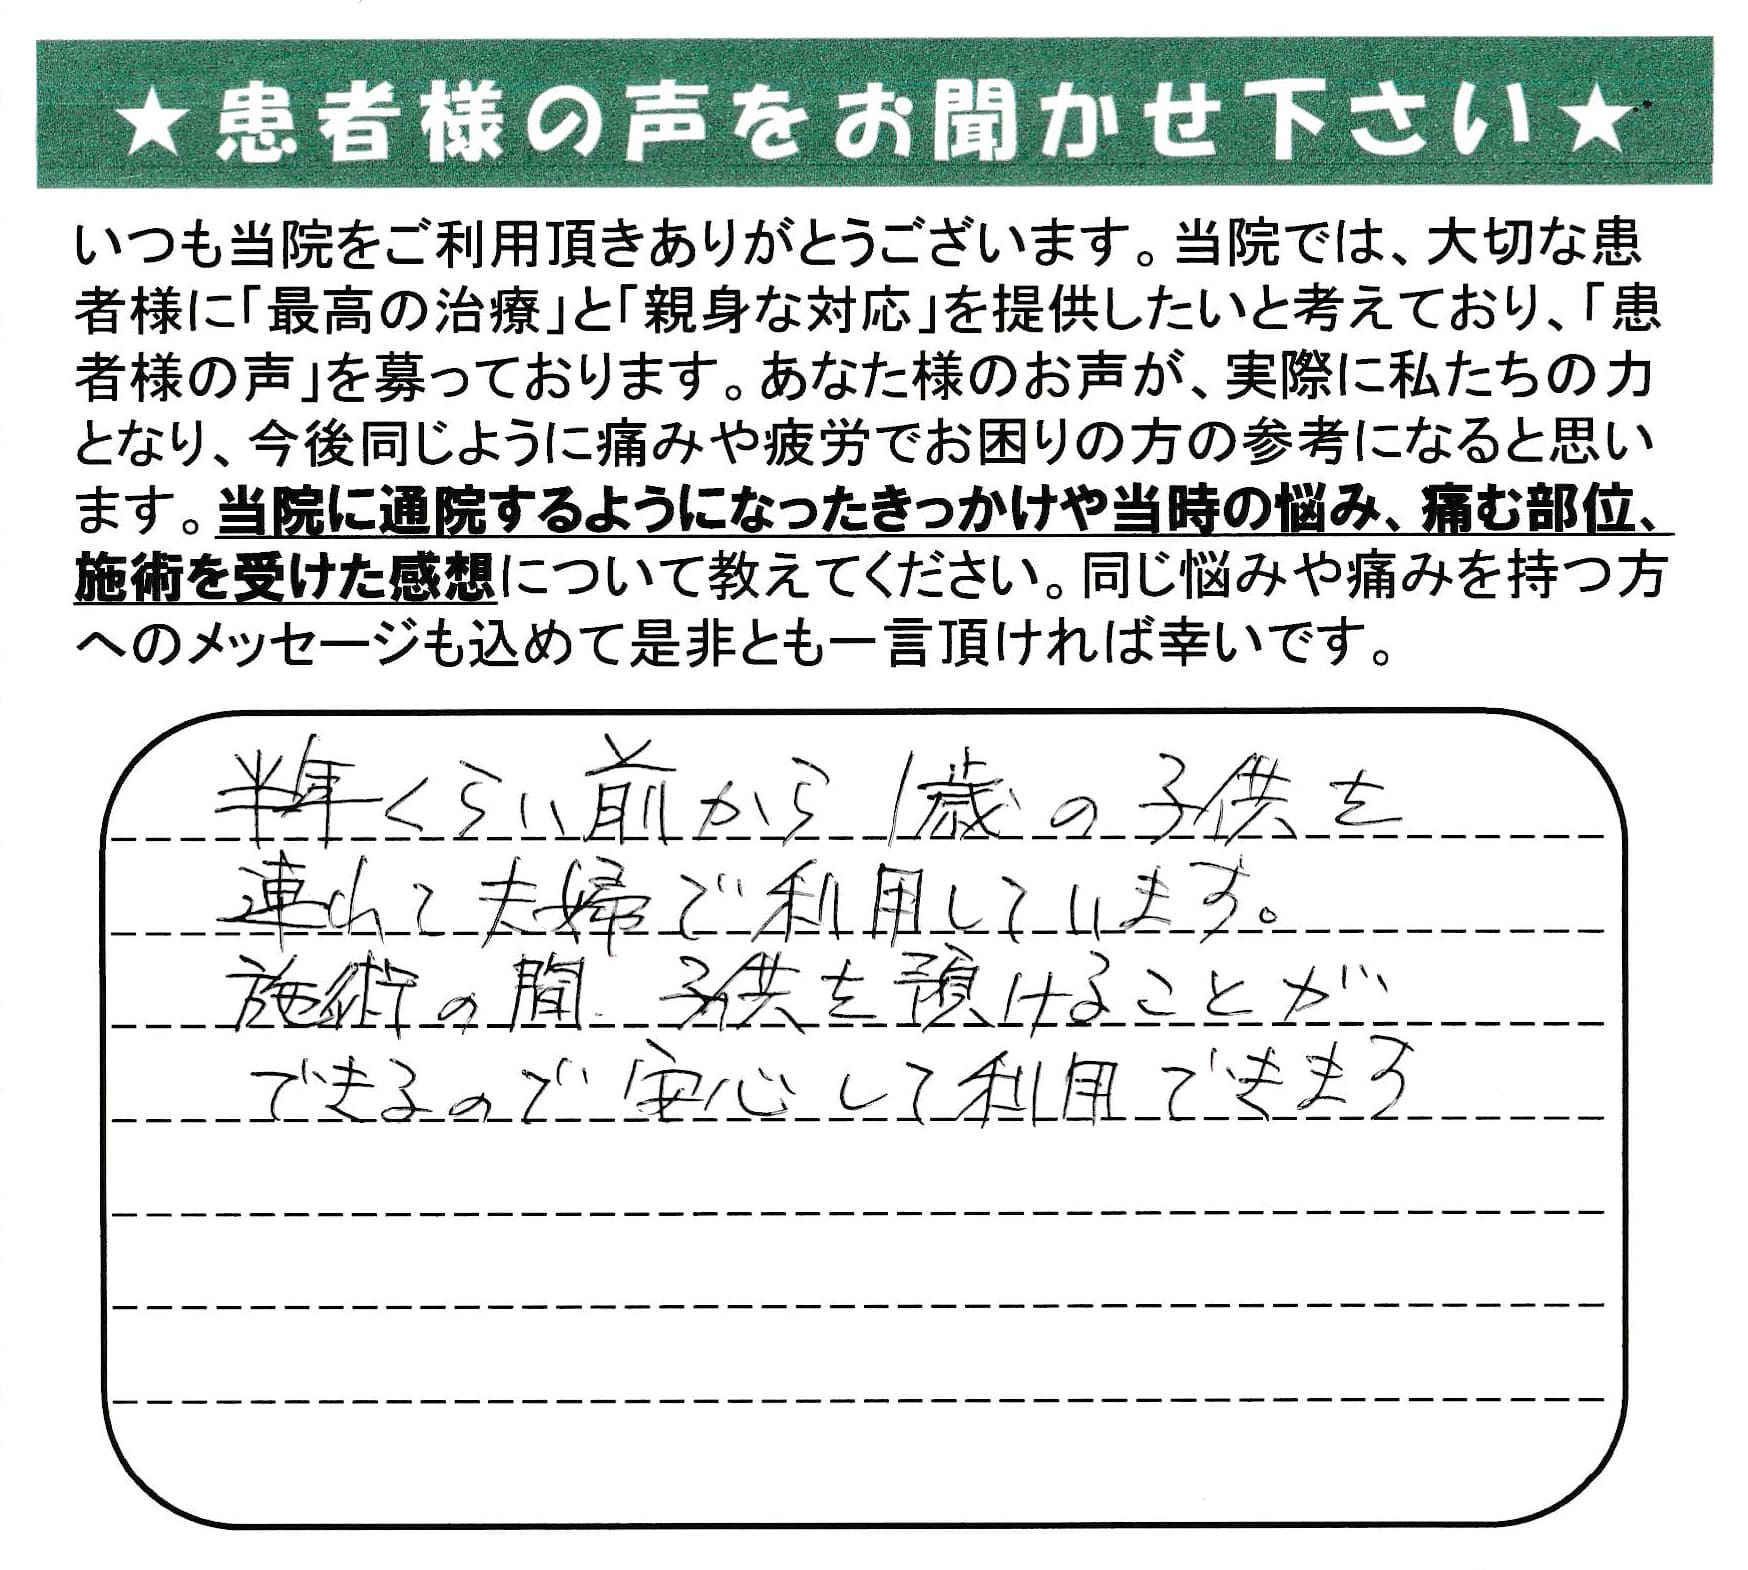 ★患者様の声をお聞かせ下さい★
いつも当院をご利用頂きありがとうございます。当院では、大切な患
者様に「最高の治療」と「親身な対応」を提供したいと考えており、「患
者様の声」を募っております。あなた様のお声が、実際に私たちの力
となり、今後同じように痛みや疲労でお困りの方の参考になると思い
ます。当院に通院するようになったきっかけや当時の悩み、痛む部位、
施術を受けた感想について教えてください。同じ悩みや痛みを持つ方
へのメッセージも込めて是非とも一言頂ければ幸いです。
半年くらい前から1歳の子供を
連れて夫婦で利用しています。
施術の間、子供を預けることが
できるので安心して利用できます